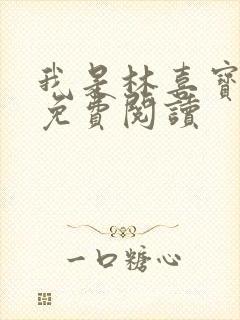 我是林喜寶
免費閱讀
一口糖心